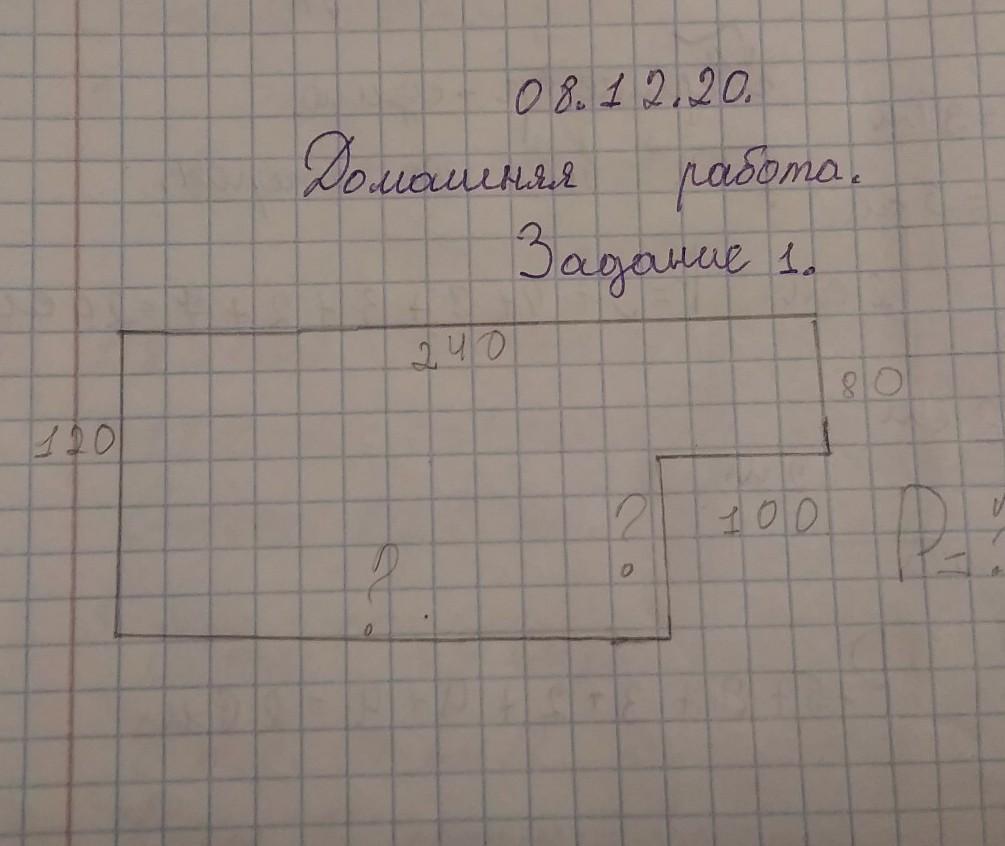 08.12.20.
Домашняя работа.
Задание 1.
240
80
120
?
100
P=?
?